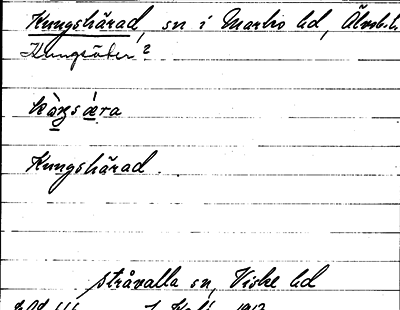 Kungshärad, sn i Marks hd, Älvsb. l.
Kungsäter?
Kungshärad.
Stråvalla sn, Viske hd
1913